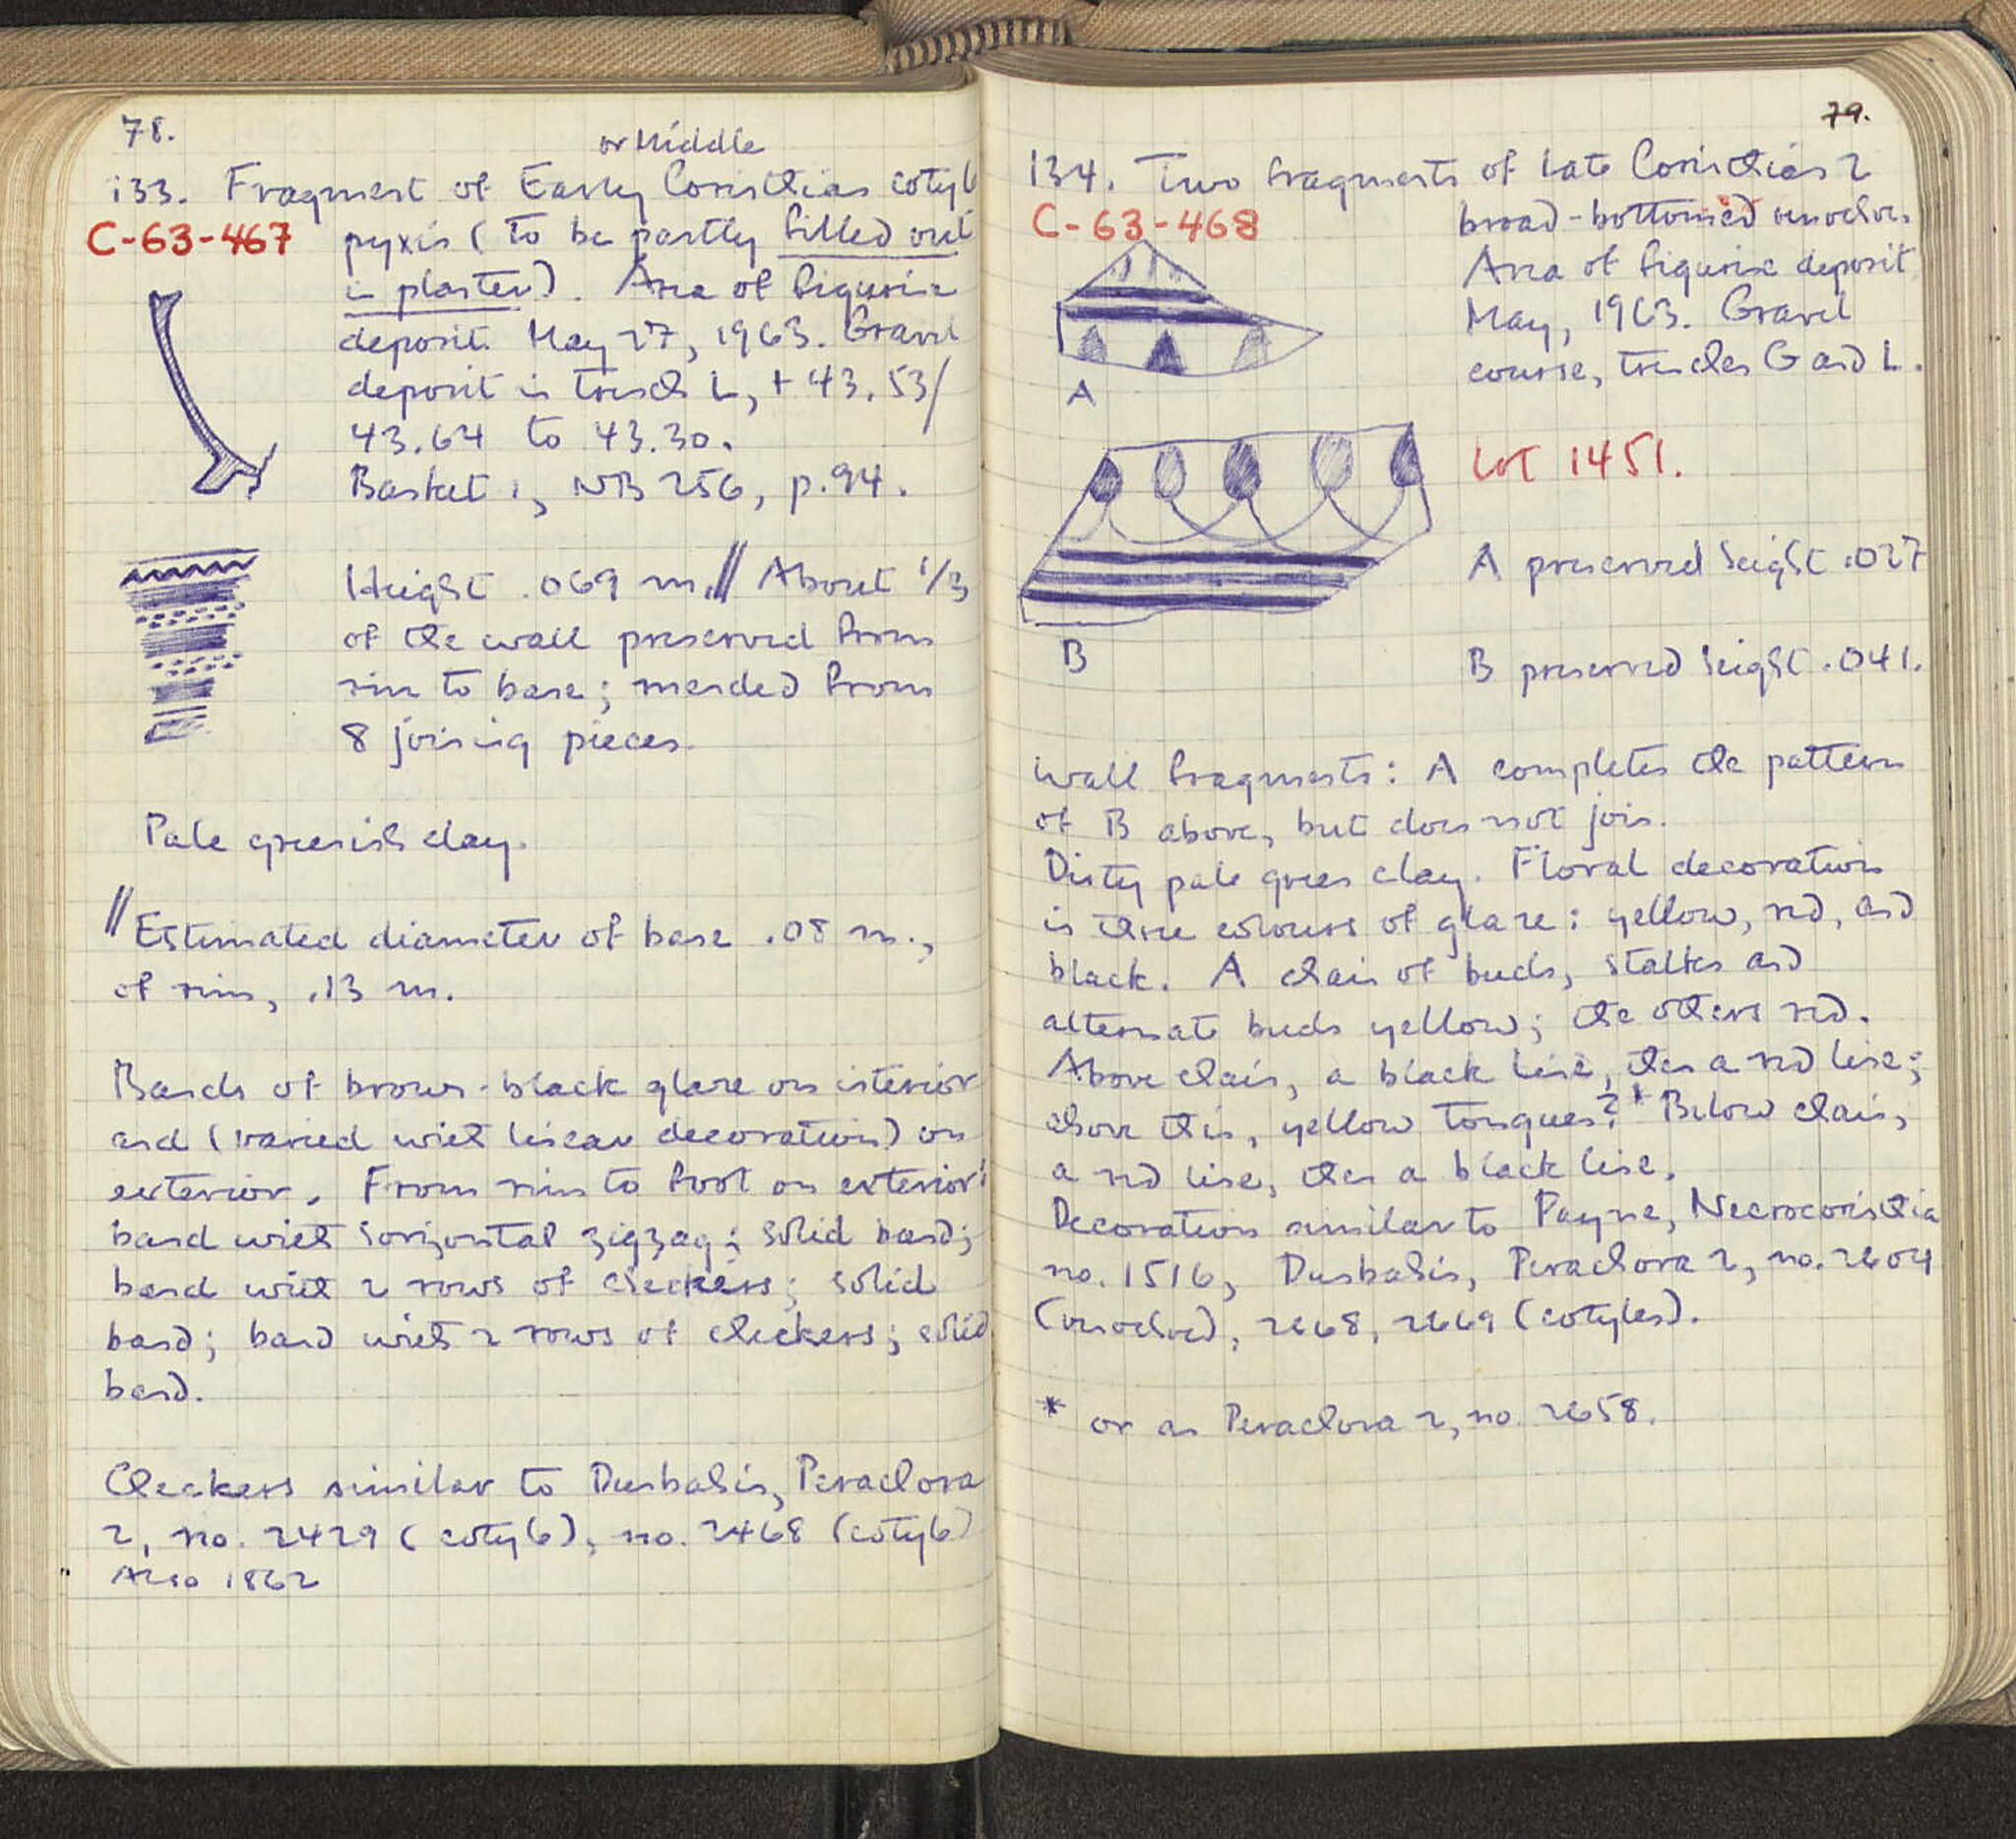 78.
or Middle
133. Fragment of Early Corinthian cotyle
C-63-467
pyxis (to be partly filled out
in plaster). Area of figurine
deposit. May 27, 1963. Gravel
deposit in trench L, + 43.53/
43.64 to 43.30.
Basket 1, NB 256, p.94.
Height .069 m.// About 1/3
of the wall preserved from
rim to base; mended from
8 joining pieces.
Pale greenish clay.
// Estimated diameter of base .08 m.,
of rim, .13 m.
Bands of brown-black glaze on interior
and (varied with linear decoration) on
exterior. From rim to foot on exterior:
band with horizontal zigzag; solid band;
band with 2 rows of checkers; solid
band; band with 2 rows of checkers; solid
band.
Checkers similar to Dunbabin, Perachora
2, no. 2429 (cotyle), no. 2468 (cotyle)
Also 1862
79.
134. Two fragments of Late Corinthian 2
C-63-468
broad-bottomed oinochoe.
Area of figurine deposit
May, 1963. Gravel
course, trenches G and L.
A
LOT 1451.
A preserved height .027
B
B preserved height .041.
Wall fragments: A completes the pattern
of B above, but does not join.
Dirty pale green clay. Floral decoration
in three colours of glaze: yellow, red, and
black. A chain of buds, stalks and
alternate buds yellow; the others red.
Above chain, a black line, then a red line;
above this, yellow tongues?* Below chain,
a red line, then a black line.
Decoration similar to Payne, Necrocorinthia
no. 1516, Dunbabin, Perachora 2, no. 2604
(oinochoe), 2668, 2669 (cotyles).
* or as Perachora 2, no 2658.